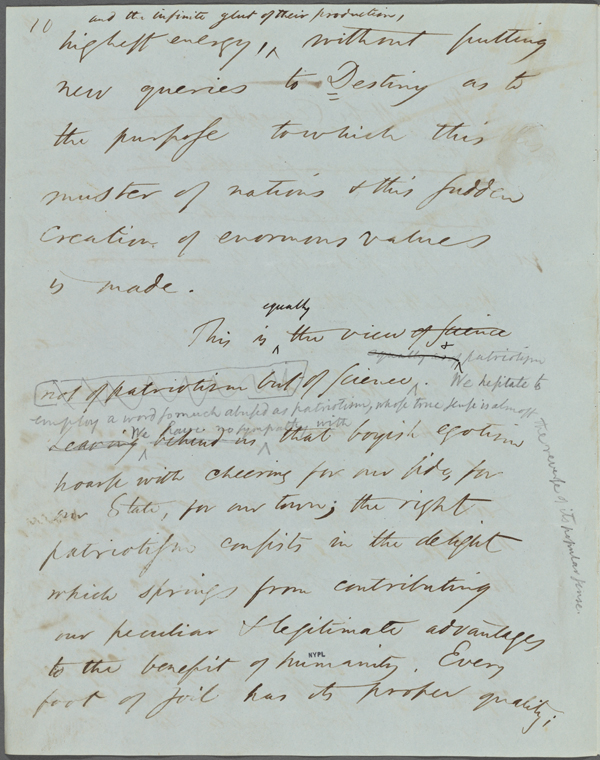 10
and the infinite glut of their production,
highest energy, ‸ without putting
new queries to Destiny as to
the purpose to which this
muster of nations & this sudden
creation of enormous values
is made.
equally
This is ‸ the view of science
equally & patriotism
not of patriotism but of science ‸. We hesitate to
employ a word so much abused as patriotism, whose true sense is almost
the reverse of its popular sense.
We have no sympathy with
Leaving behind us ‸ that boyish egotism
hoarse with cheering for our side, for
our State, for our town; the right
patriotism consists in the delight
which springs from contributing
our peculiar & legitimate advantages
to the benefit of humanity. Every
NYPL
foot of soil has its proper quality;